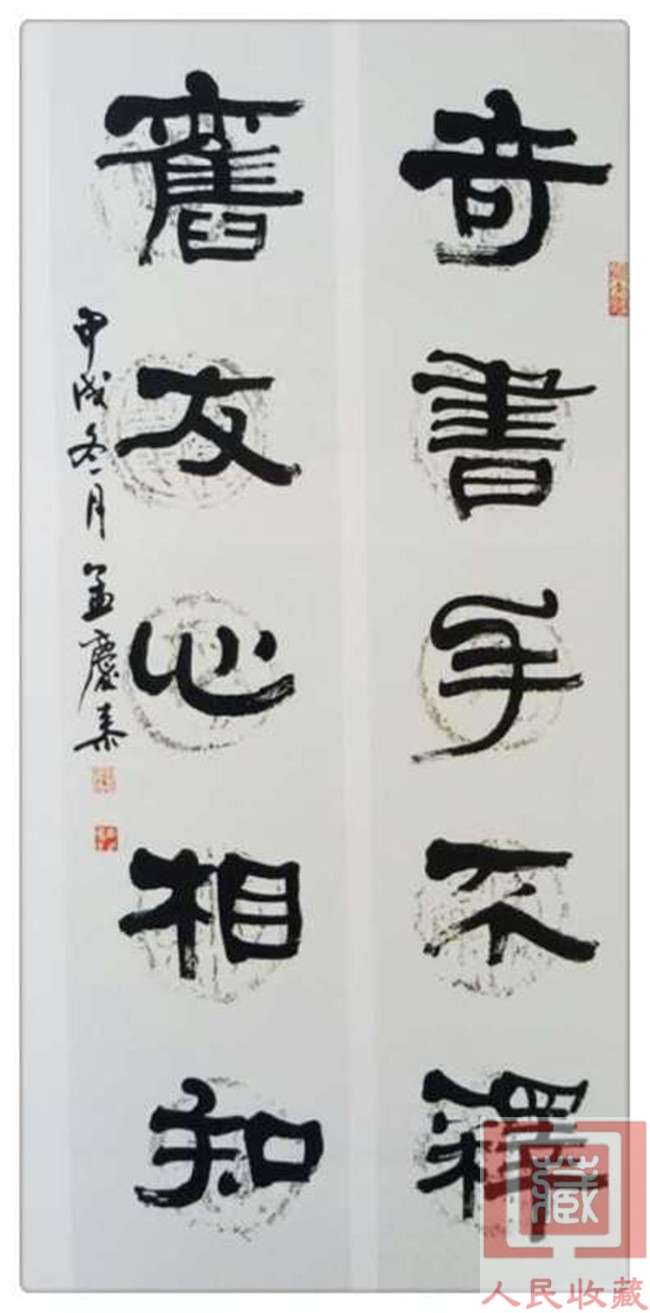 奇書手不釋
舊友心相知
甲戌冬月孟慶泰
藏
人民收藏